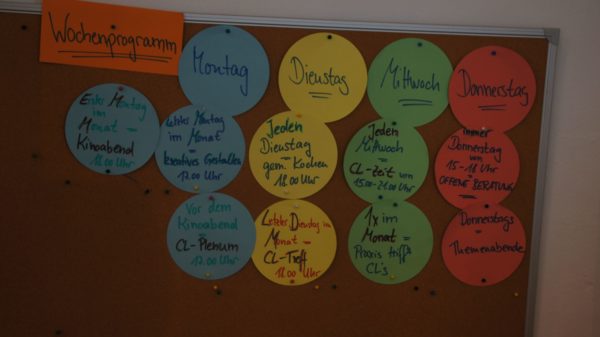 Wochenprogramm
Montag
Dienstag
Mittwoch
Donnerstag
Erster Montag
im
Monat =
Kinoabend
18.00 Uhr
Letzter Montag
im Monat =
kreatives Gestalten
17.00 Uhr
Vor dem
Kinoabend =
CL-Plenum
17.00 Uhr
Jeden
Dienstag
=
gem. Kochen
18.00 Uhr
Letzter Dienstag im
Monat =
CL-Treff
18.00 Uhr
Jeden
Mittwoch
=
CL-Zeit von
15.00-21.00 Uhr
1x im
Monat =
Praxis trifft
CL's
immer
Donnerstag
von
15-18 Uhr
OFFENE BERATUNG
Donnerstags
=
Themenabende